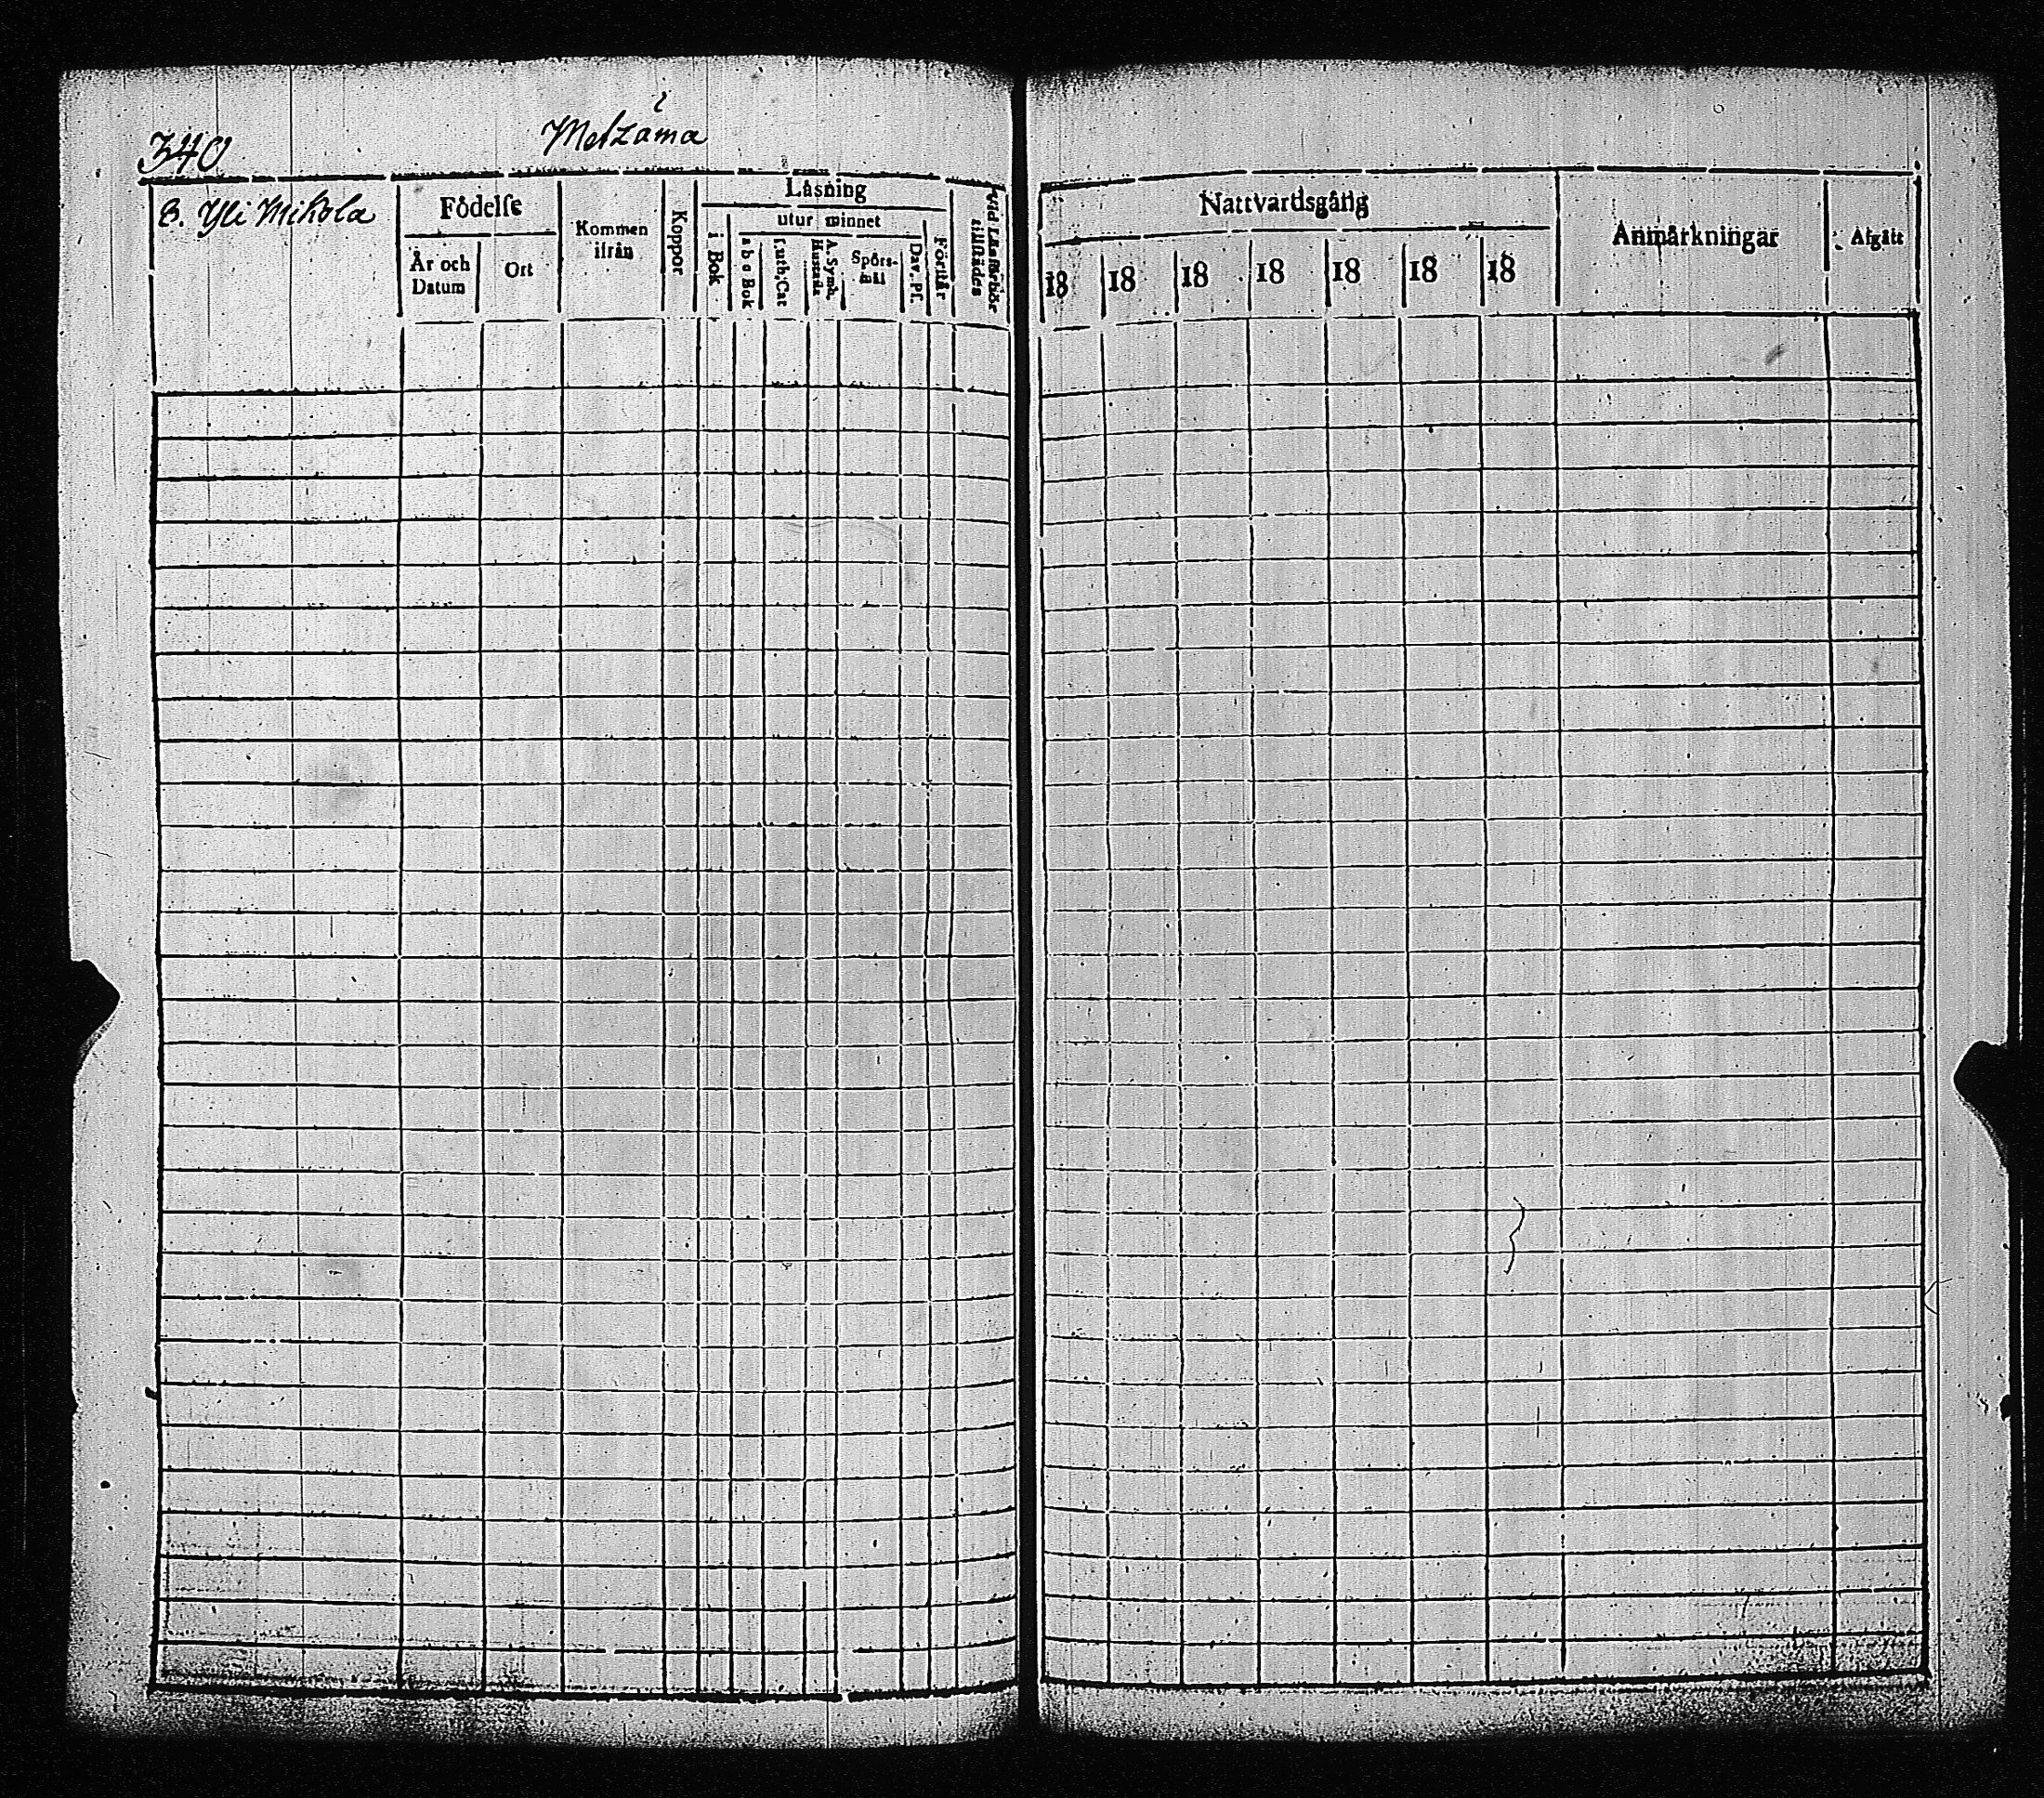 340
Metzämä
8. Yli Mikola
Födelse
År och Datum
Ort
Kommen ifrån
Koppor
Läsning
i Bok
utur minnet
a b c Bok
Luth. Cat
A. Symb. Hustafla
Spörs-mål
Dav. Ps.
Förstår
Vid Läsförhör tillstädes
Nattvardsgång
18 18 18 18 18 18 18
Anmärkningar
Afgått